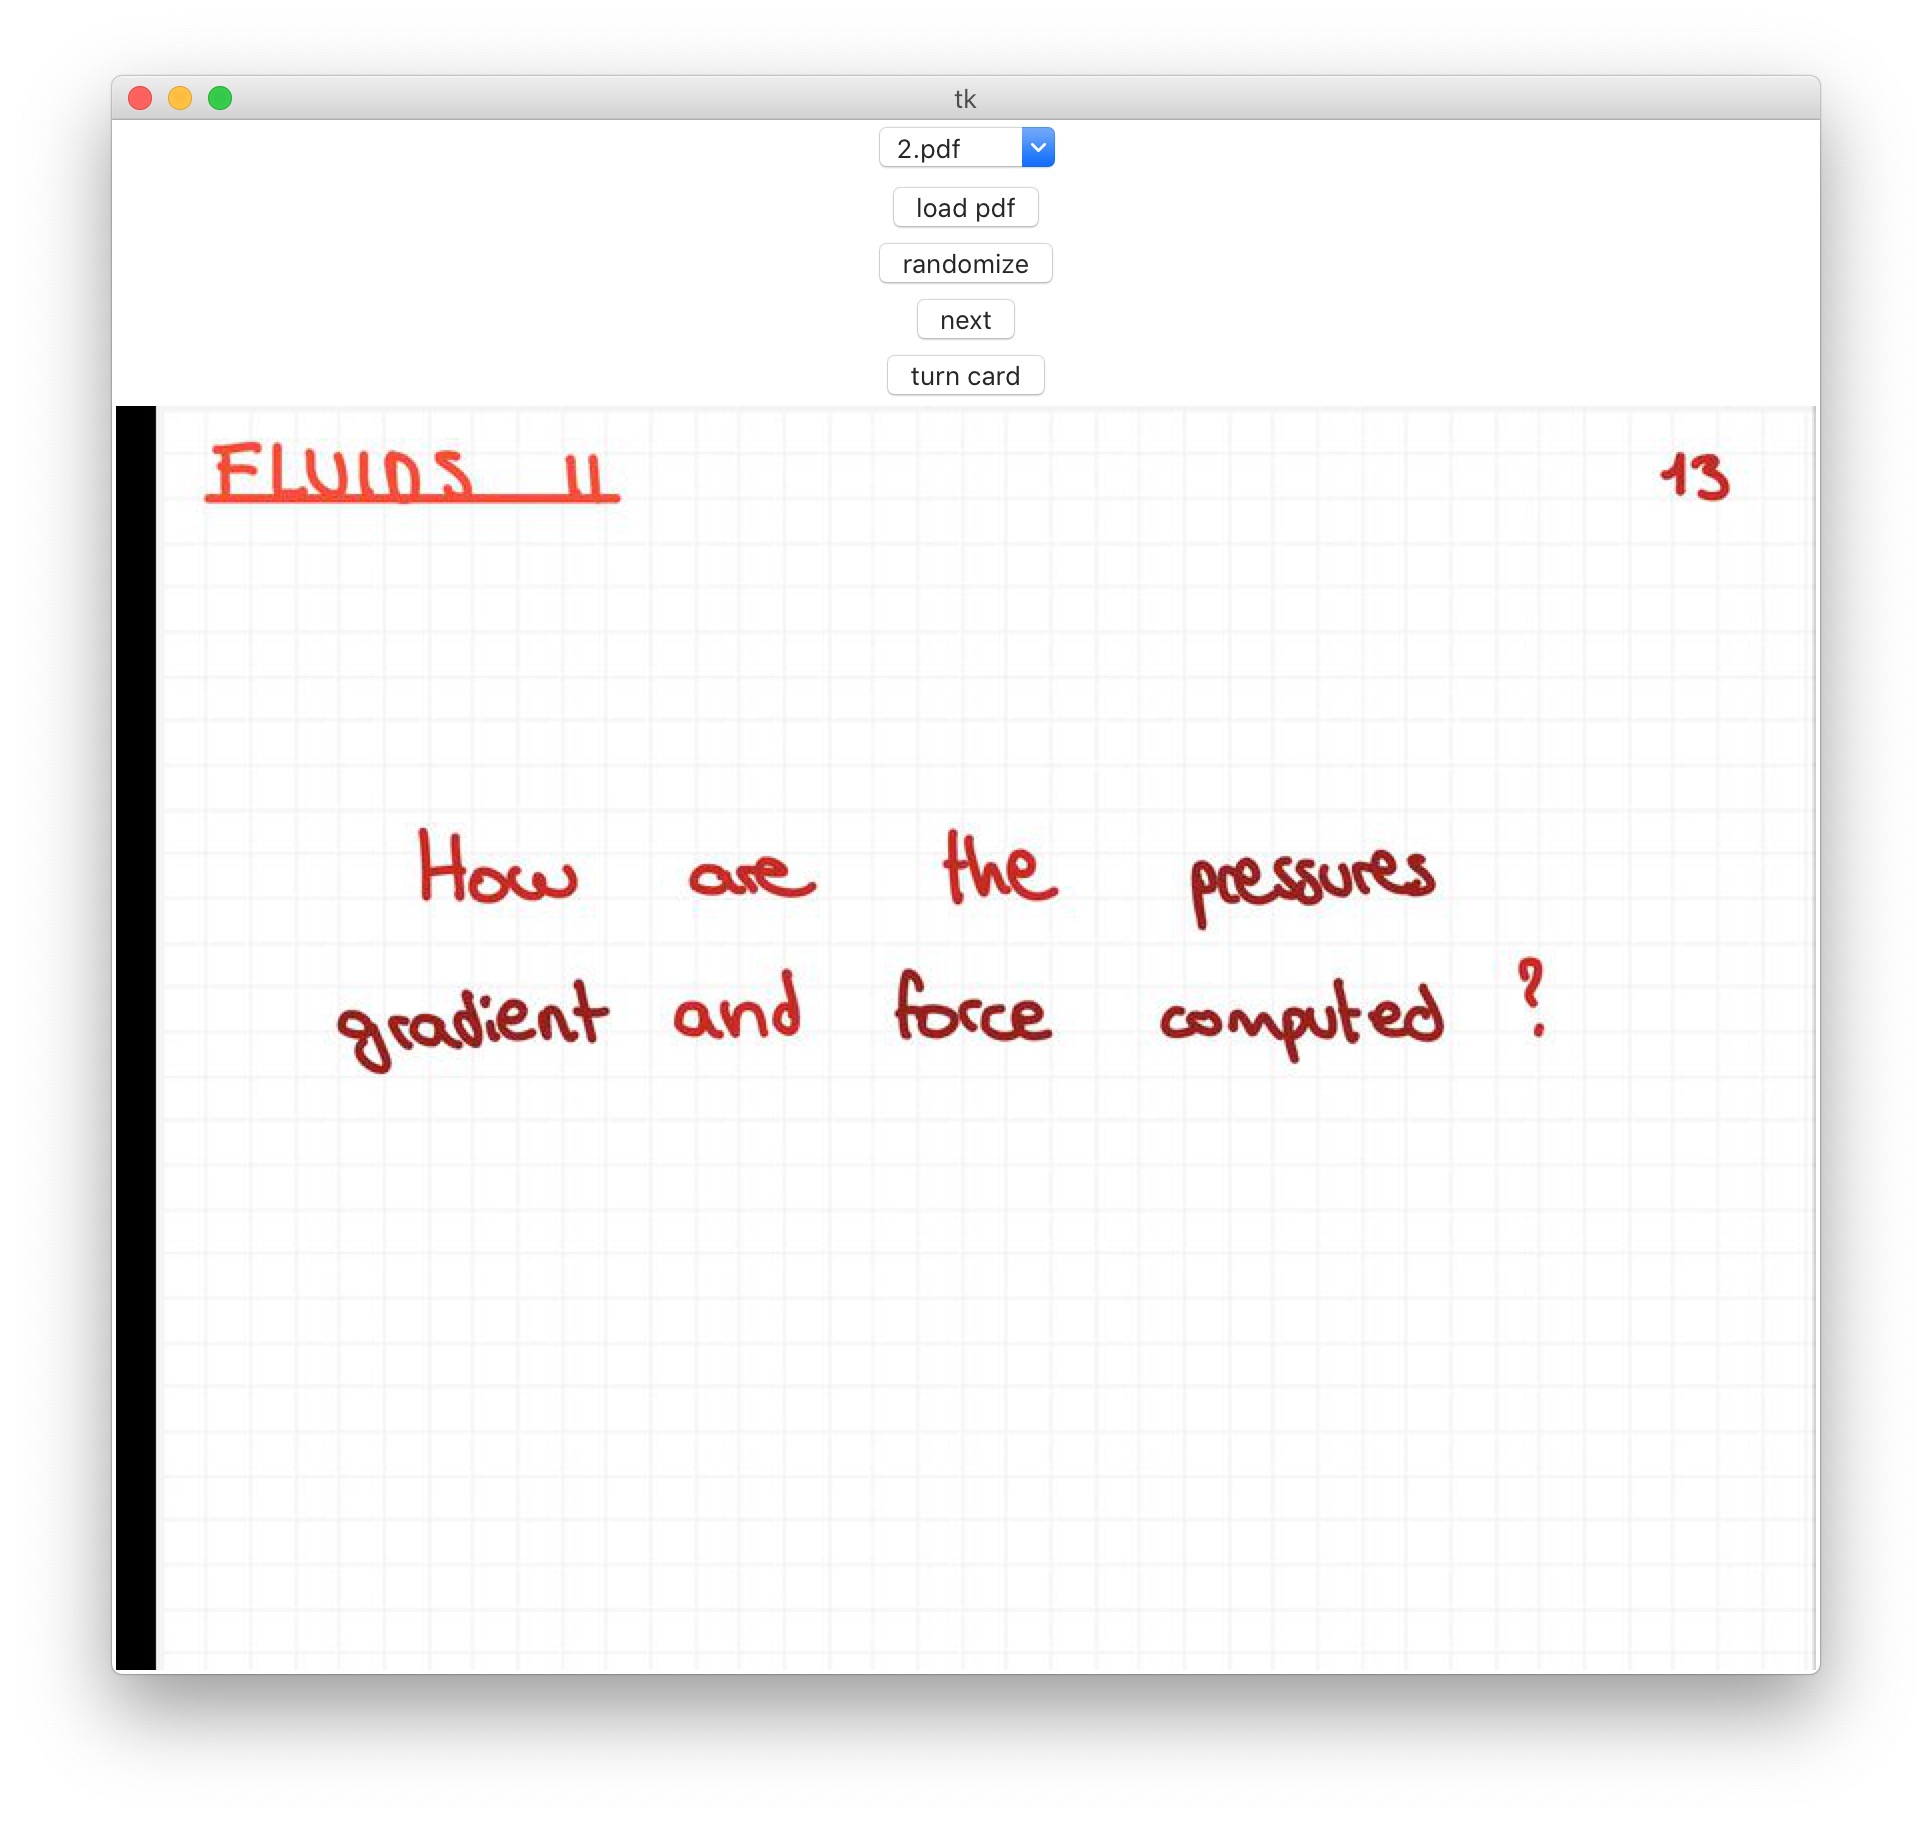 tk
2.pdf
load pdf
randomize
next
turn card
FLUIDS II
13
How are the pressures
gradient and force computed ?